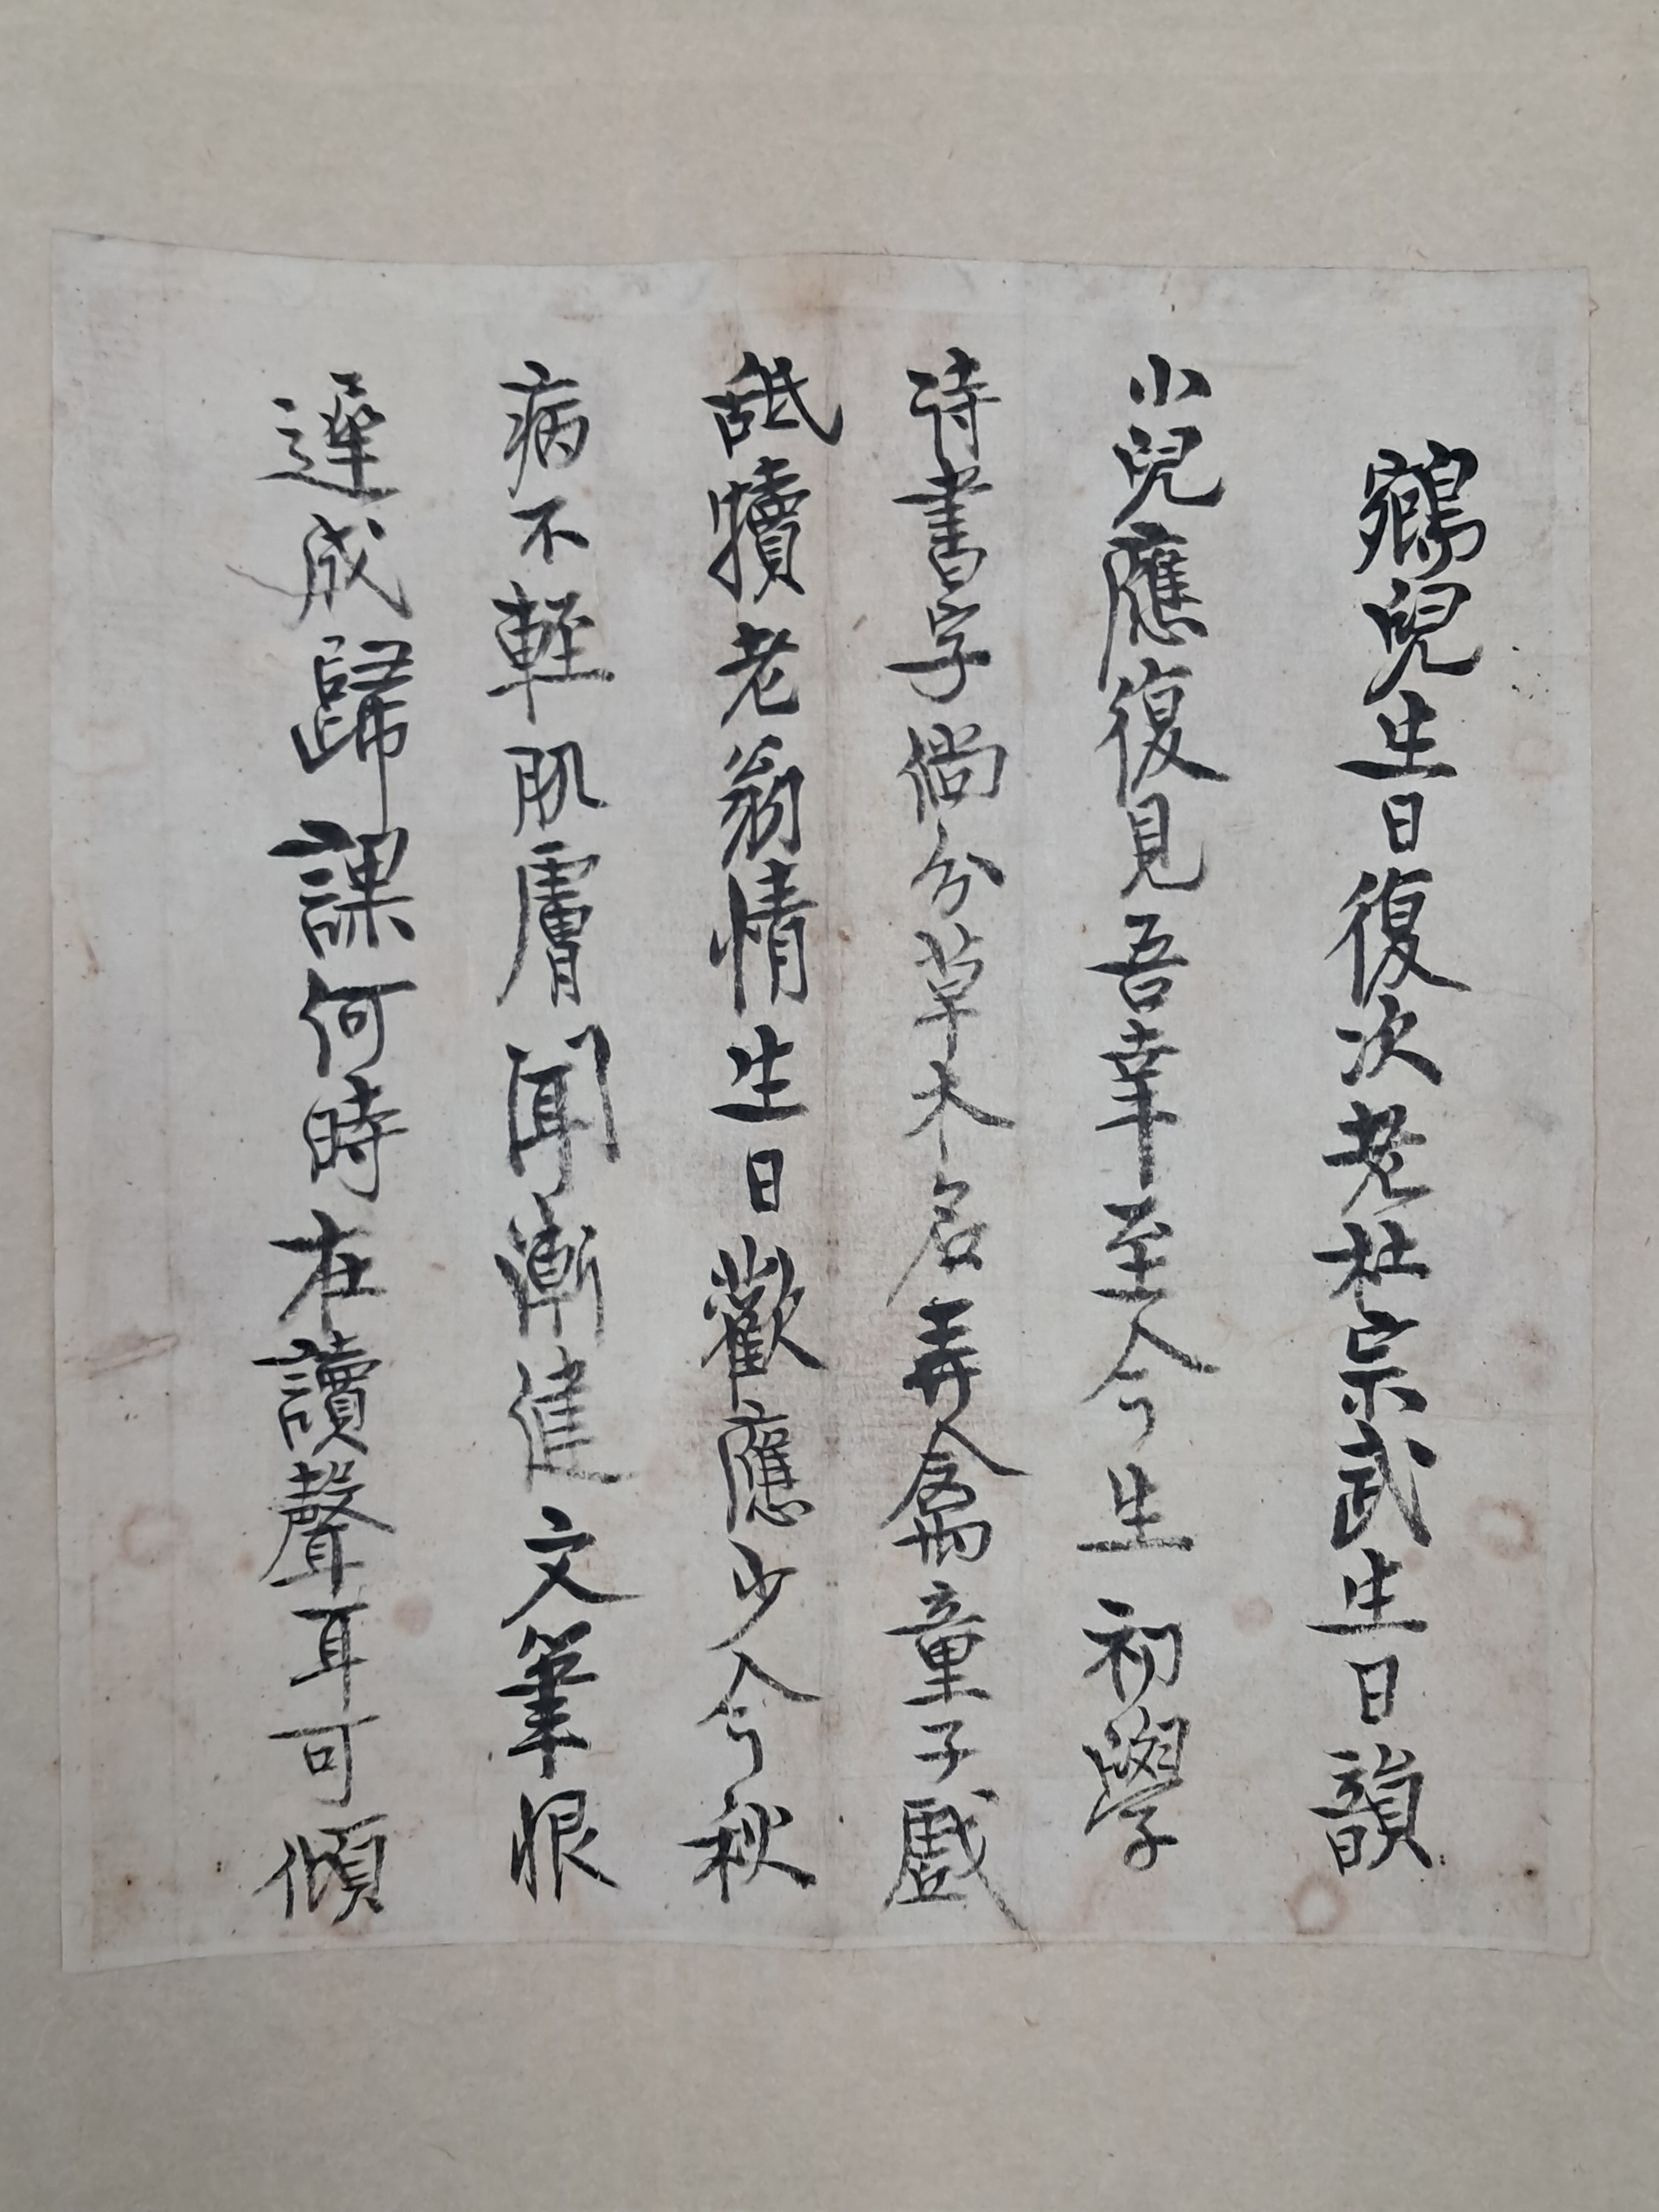 鵷兒生日復次老杜宗武生日韻
小兒應復見吾幸至今生初學
詩書字倘分草木名弄禽童子戲
舐犢老翁情生日歡應少今秋
病不輕肌膚聞漸健文筆恨
遲成歸課何時在讀聲耳可傾